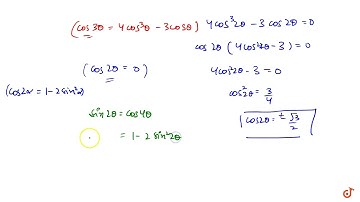 (cos3θ = 4cos³θ - 3cosθ)
4cos³2θ - 3cos2θ = 0
cos2θ (4cos²2θ - 3) = 0
(cos2θ = 0)
4cos²2θ - 3 = 0
(cos2x = 1 - 2sin²x)
cos²2θ = 3/4
sin2θ = cos4θ
cos2θ = ± √3/2
= 1 - 2 sin²2θ
doubtnut